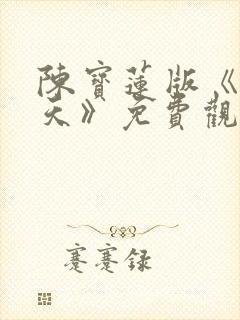 陳寶蓮版《
天》免費觀
蹇蹇録